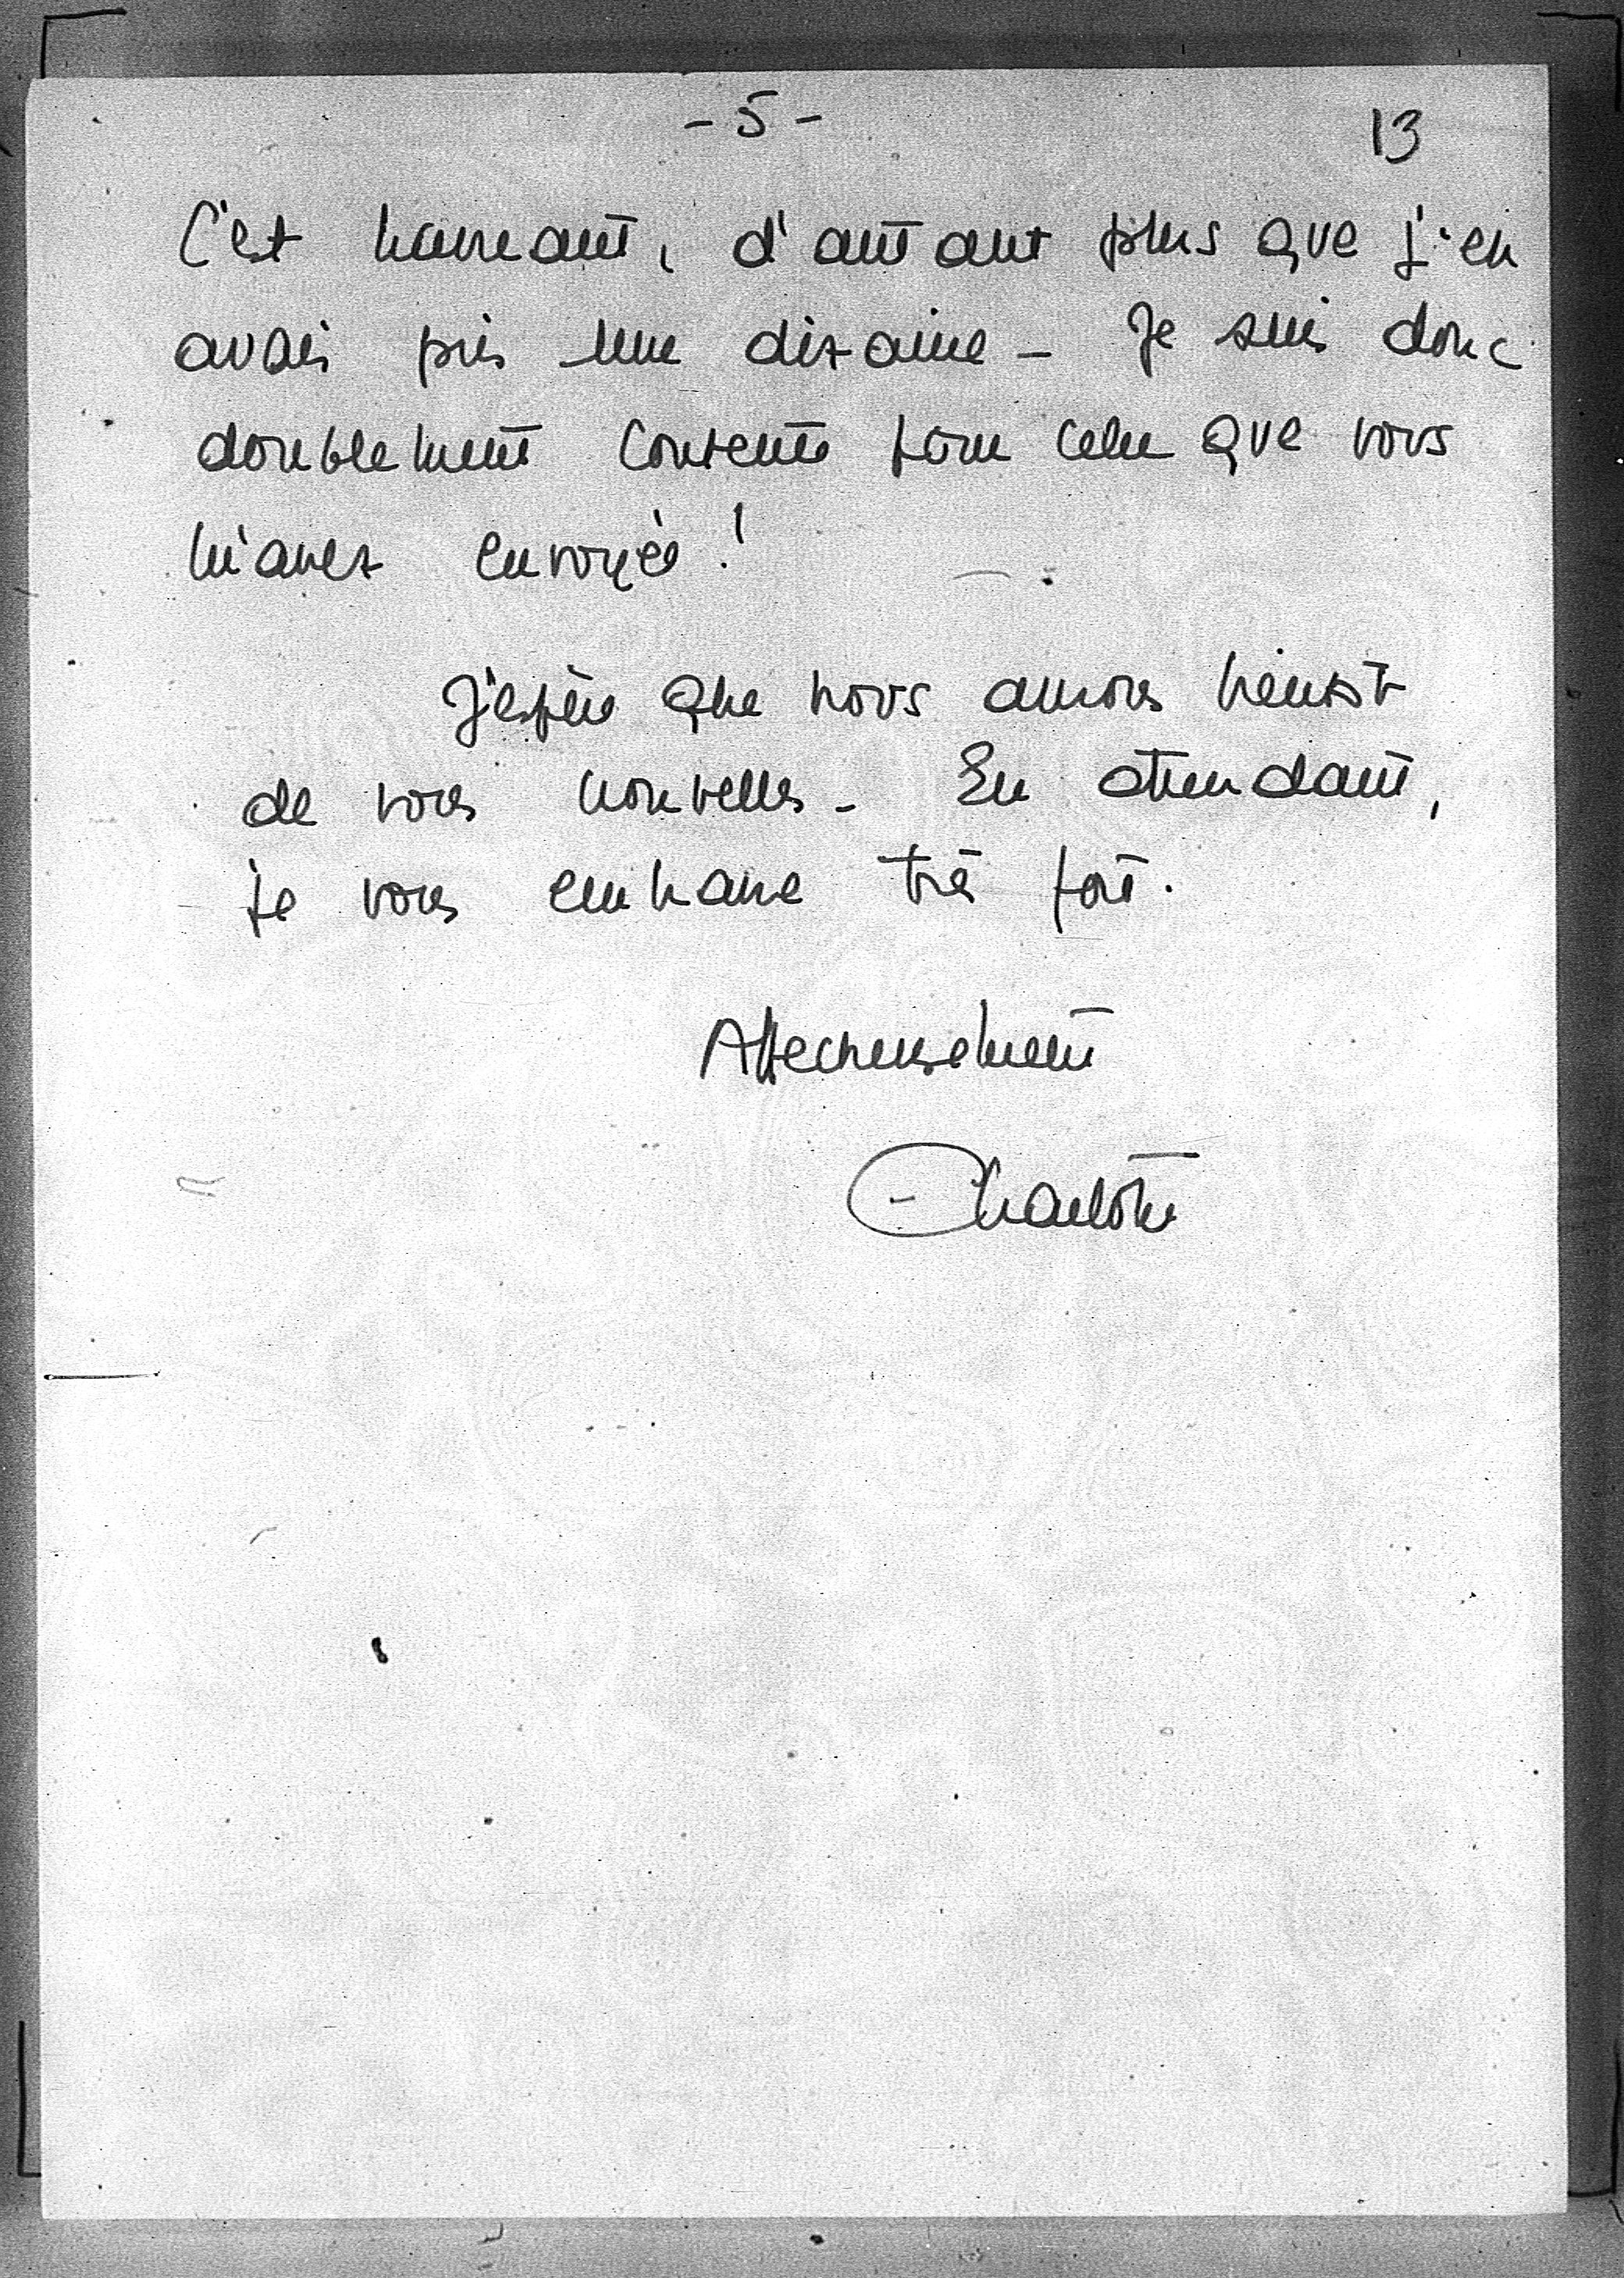 - 5 -
13
C'est navrant, d'autant plus que j'en
avais pris une dizaine - Je suis donc
doublement contente pour celle que vous
m'avez envoyée !
J'espère que nous aurons bientôt
de vos nouvelles - En attendant,
je vous embrasse très fort.
Affectueusement
Charlotte